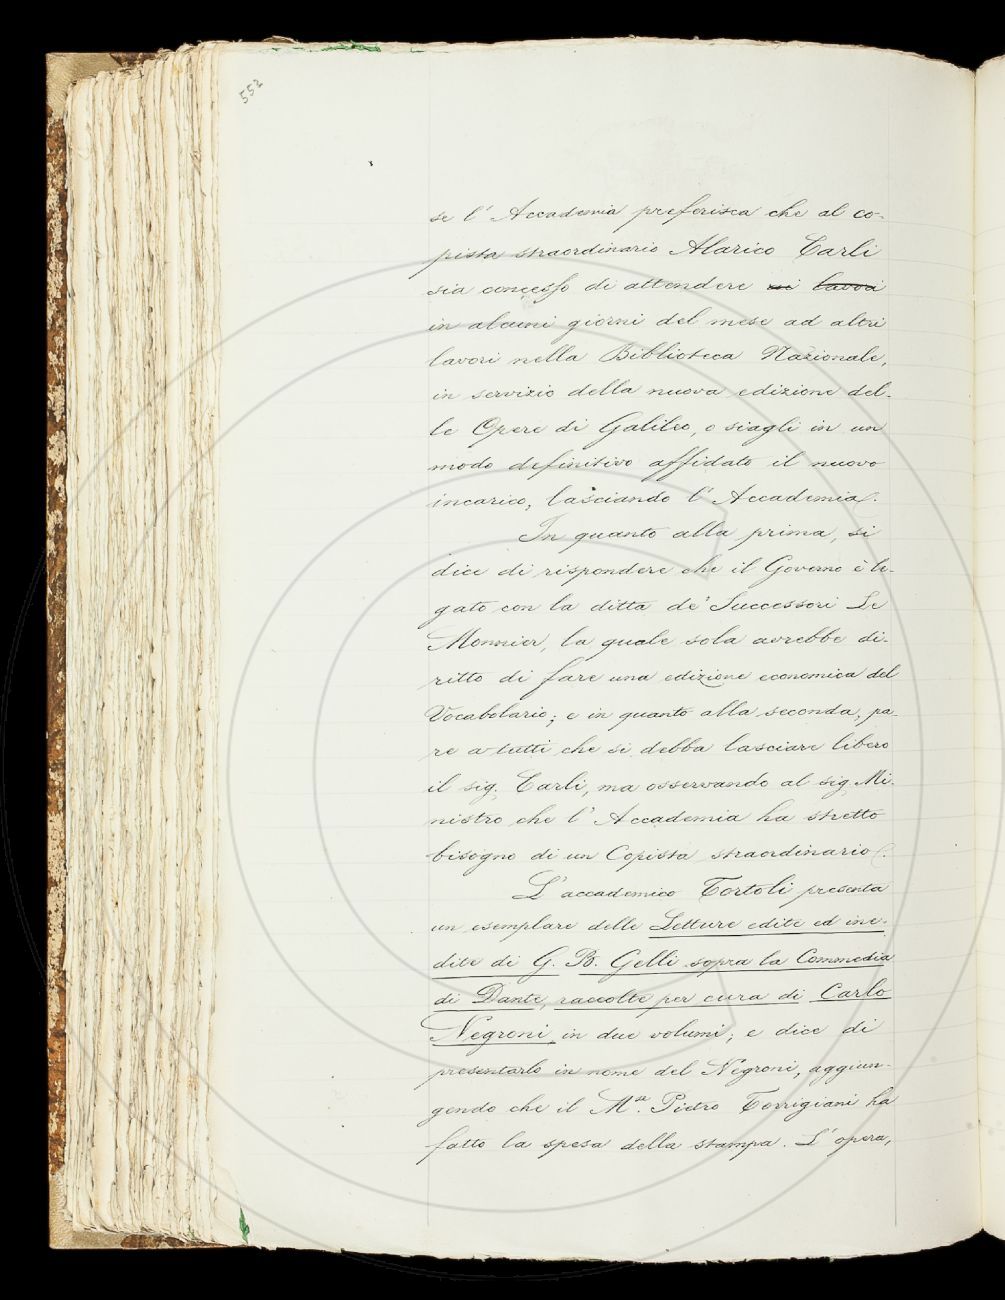 552
se l'Accademia preferisca che al co-
pista straordinario Alarico Carli
sia concesso di attendere ai lavori
in alcuni giorni del mese ad altri
lavori nella Biblioteca Nazionale,
in servizio della nuova edizione del-
le Opere di Galileo, o siagli in un
modo definitivo affidato il nuovo
incarico, lasciando l'Accademia.
In quanto alla prima, si
dice di rispondere che il Governo è le-
gato con la ditta de' Successori Le
Monnier, la quale sola avrebbe di-
ritto di fare una edizione economica del
Vocabolario; e in quanto alla seconda, pa-
re a tutti che si debba lasciare libero
il sig. Carli, ma osservando al sig. Mi-
nistro che l'Accademia ha stretto
bisogno di un Copista straordinario.
L'accademico Tortoli presenta
un esemplare delle Letture edite ed ine-
dite di G. B. Gelli sopra la Commedia
di Dante, raccolte per cura di Carlo
Negroni, in due volumi; e dice di
presentarlo in nome del Negroni, aggiun-
gendo che il M.se Pietro Torrigiani ha
fatto la spesa della stampa. L'opera,